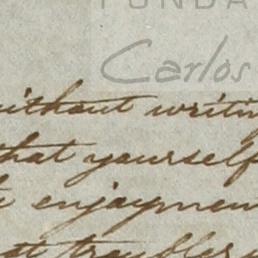 FUNDA
Carlos
without writin
that yourself
enjoymen
troubles